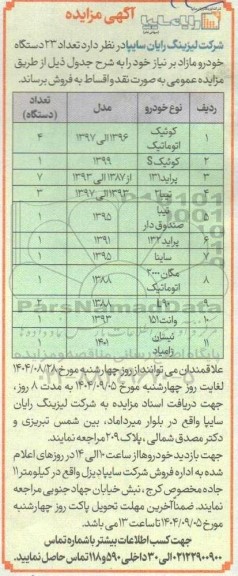 آگهی مزایده
رایان سایپا
شرکت لیزینگ رایان سایپا در نظر دارد تعداد ۲۳ دستگاه
خودرو مازاد بر نیاز خود را به شرح جدول ذیل از طریق
مزایده عمومی به صورت نقد و اقساط به فروش برساند.
ردیف نوع خودرو مدل تعداد (دستگاه)
۱ کوئیک اتوماتیک ۱۳۹۶ الی ۱۳۹۷ ۴
۲ کوئیک S ۱۳۹۹ ۱
۳ پراید ۱۳۱ از ۱۳۸۷ الی ۱۳۹۳ ۷
۴ تیبا ۲ ۱۳۹۳ الی ۱۳۹۷ ۳
۵ تیبا صندوق دار ۱۳۹۵ ۱
۶ پراید ۱۳۲ ۱۳۹۱ ۱
۷ ساینا ۱۳۹۵ ۱
۸ مگان ۲۰۰۰ اتوماتیک ۱۳۸۸ ۱
۹ ۱۳۸۸ ۲
۱۰ وانت ۱۵۱ ۱۳۹۳ ۱
۱۱ نیسان زامیاد ۱۴۰۱ ۱
علاقمندان می توانند از روز چهارشنبه مورخ ۱۴۰۴/۰۸/۲۸
لغایت روز چهارشنبه مورخ ۱۴۰۴/۰۹/۰۵ به مدت ۸ روز،
جهت دریافت اسناد مزایده به شرکت لیزینگ رایان
سایپا واقع در بلوار میرداماد، بین شمس تبریزی و
دکتر مصدق شمالی، پلاک ۲۰۹ مراجعه نمایند.
جهت بازدید خودروها از ساعت ۱۰ الی ۱۴ در روزهای اعلام
شده به اداره فروش شرکت سایپا دیزل واقع در کیلومتر ۱۱
جاده مخصوص کرج، نبش خیابان جهاد جنوبی مراجعه
نمایند. ضمناً آخرین مهلت تحویل پاکت روز چهارشنبه
مورخ ۱۴۰۴/۰۹/۰۵ تا ساعت ۱۳ می باشد.
جهت کسب اطلاعات بیشتر با شماره تماس
۰۲۱۲۲۹۰۰۹۰۰ الی ۳۰ داخلی ۵۹۰ و ۱۱۸ تماس حاصل نمایید.